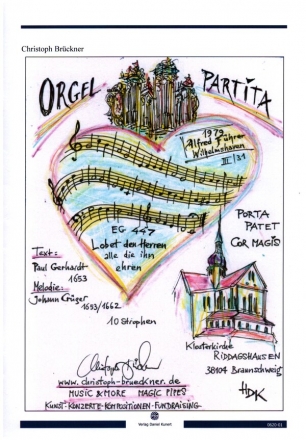 Christoph Brückner
ORGEL PARTITA
1979
Alfred Führer
Wilhelmshaven
III/31
EG 447
Lobet den Herren
alle die ihn
ehren
PORTA
PATET
COR MAGIS
Text:
Paul Gerhardt
1653
Melodie:
Johann Crüger
1653/1662
10 Strophen
Klosterkirche
RIDDAGSHAUSEN
38104 Braunschweig
HDK
www.christoph-brueckner.de
MUSIC & MORE MAGIC PIPES
KUNST-KONZERTE-KOMPOSITIONEN-FUNDRAISING
Verlag Daniel Kunert